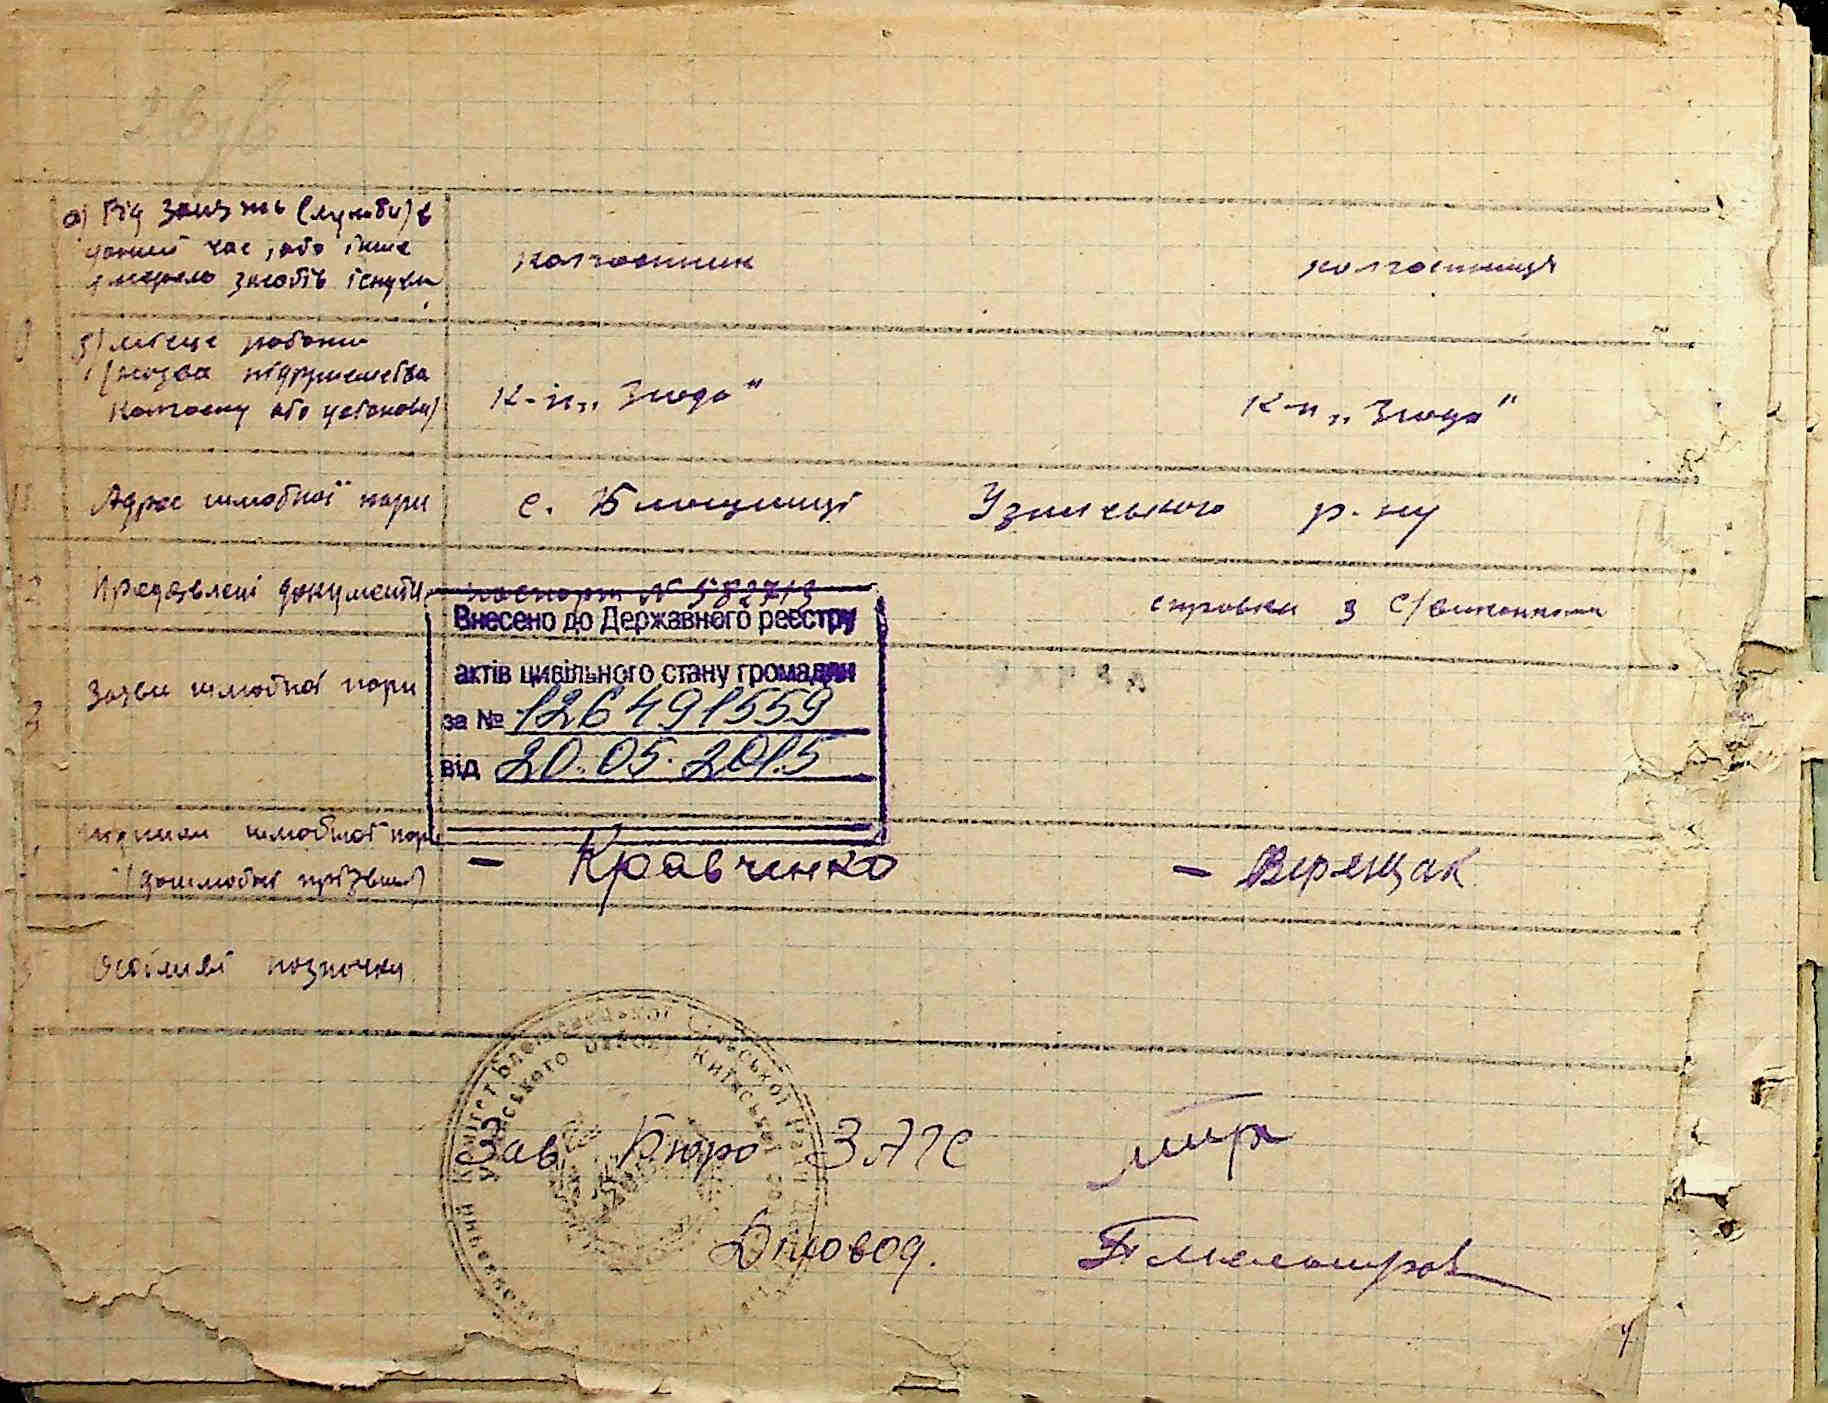 а) Рід занять (служби) в
даний час, або інше
джерело засобів існув.
колгоспник
колгоспниця
б) місце роботи
(назва підприємства
колгоспу або установи)
К-п „Згода"
К-п „Згода"
11 Адрес шлюбної пари
с. Блощинці Узинського р-ну
12 Предявлені документи
паспорт № 582713
справка з С/виконкому
Внесено до Державного реєстру
актів цивільного стану громадян
за № 126491559
від 20.05.2015
Заяви шлюбної пари
підписи шлюбної пари
(дошлюбні прізвища)
– Кравченко
– Верещак
Особливі позначки
Зав Бюро ЗАГС
Діловод.